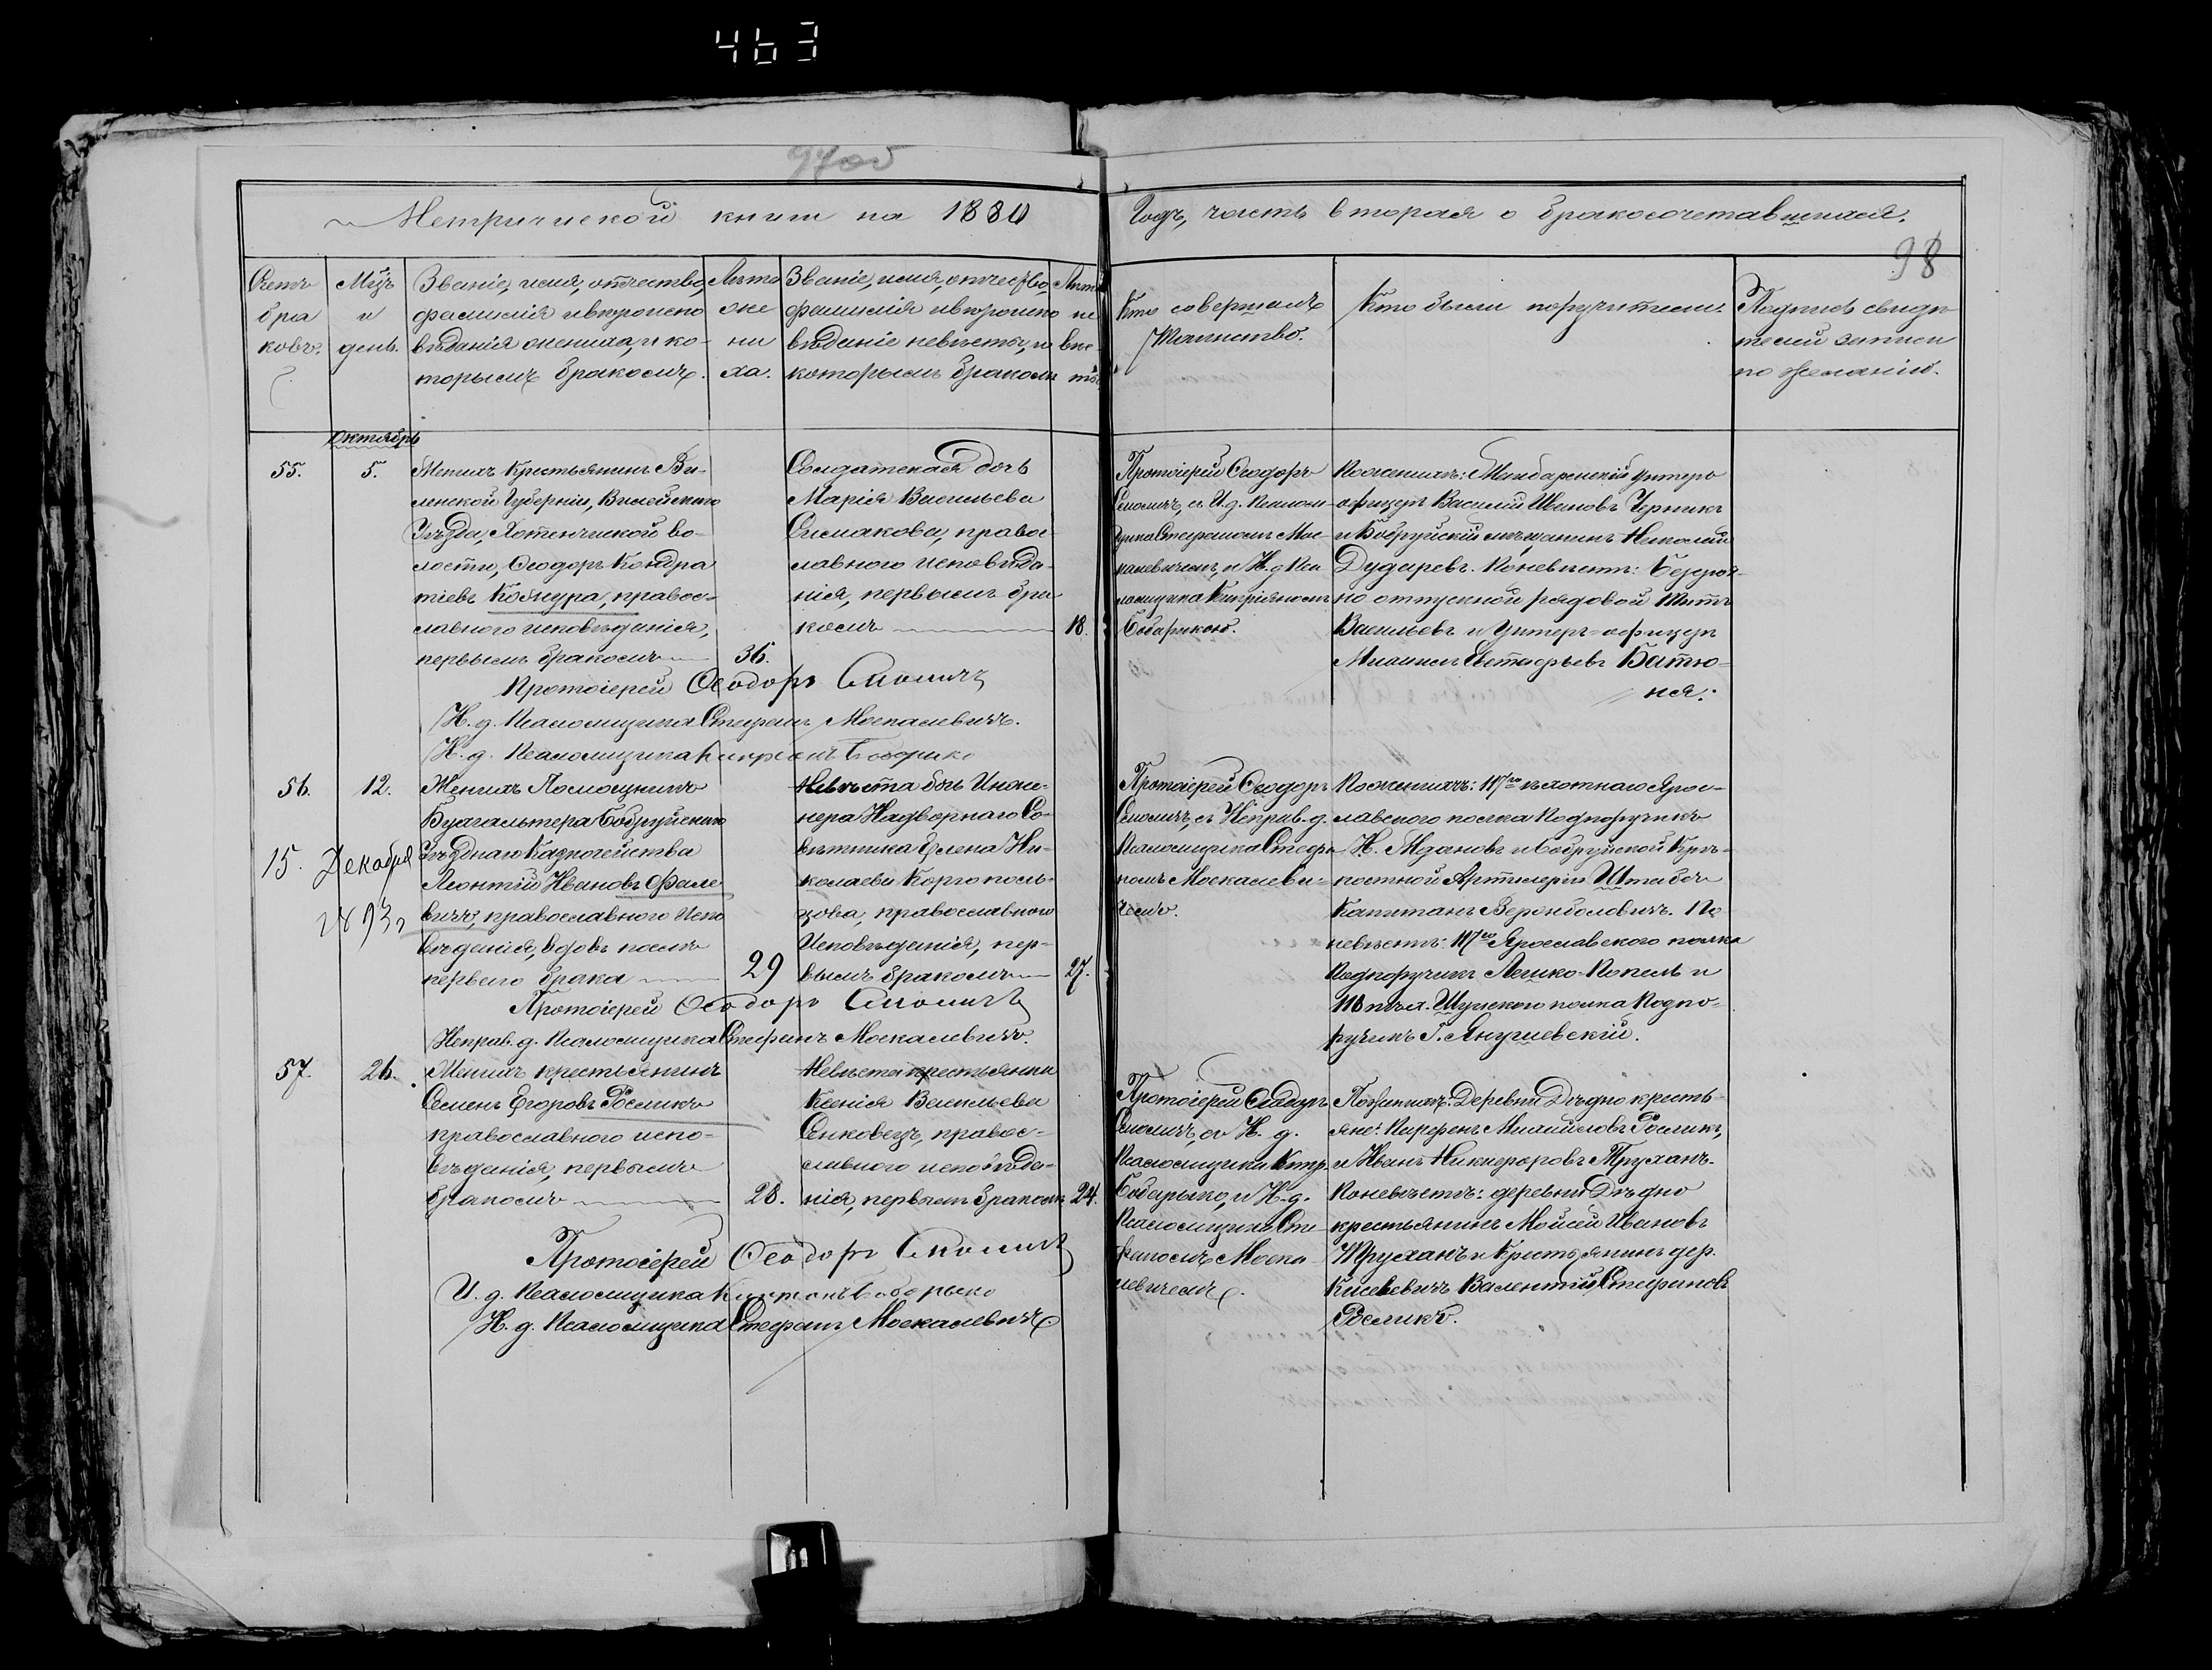 463
97об
Метрической книги на 1880
Годъ, часть вторая о бракосочетавшихся.
98
Счетъ
бра
ковъ.
Мцъ
и
день.
Званіе, имя, отчество,
фамилія и вѣроиспо
вѣданія жениха, и ко-
торымъ бракомъ.
Лѣта
же
ни
ха.
Званіе, имя, отчество,
фамилія и вѣроиспо
вѣданіе невѣсты, и
которымъ бракомъ
Лѣта
не
вѣс
ты
Кто совершалъ
Таинство.
Кто были поручители.
Подпись свидѣ
телей записи
по желанію.
Октябрь
55.
5.
Женихъ Крестьянинъ Ви-
ленской Губерніи, Вилейскаго
Уѣзда, Хотенчиской во-
лости, Ѳеодоръ Кондра
тіевъ Кожура, правос-
лавного исповѣданія,
первымъ бракомъ
36.
Солдатская дочь
Марія Васильева
Симакова, правос
лавного исповѣда-
нія, первымъ бра
комъ
18.
Протоіерей Ѳеодоръ
Смоличъ, съ И. д. Псалом-
щика Стефаномъ Мос-
калевичемъ, и И. д. Пса
ломщика Кипріаномъ
Боборикою.
По женихѣ: Жандармскій унтеръ
офицеръ Василій Ивановъ Черникъ
и Бобруйскій мѣщанинъ Николай
Дударевъ. По невѣстѣ: Безсроч-
но отпускной рядовой Титъ
Васильевъ и Унтеръ-офицеръ
Михаилъ Евстафьевъ Батю-
ня.
Протоіерей Ѳеодоръ Смоличъ
И. д. Псаломщика Стефанъ Москалевичъ.
И. д. Псаломщика Кипріанъ Боборико
56.
12.
15. Декабря
1893 г
Женихъ Помощникъ
Бухгальтера Бобруйскаго
Уѣзднаго Казначейства
Леонтій Ивановъ Фале
вичъ, православного Испо
вѣданія, вдовъ послѣ
перваго брака
29
Невѣста дочь Инже-
нера Надворнаго Со-
вѣтника Елена Ни-
колаева Каргополь-
цова, православного
Исповѣданія, пер-
вымъ бракомъ
27.
Протоіерей Ѳеодоръ
Смоличъ, съ Исправ. д.
Псаломщика Стефа
номъ Москалеви-
чемъ.
По женихѣ: 117го пѣхотнаго Ярос-
лавского полка Подпоручикъ
Н. Ждановъ и Бобруйской Крѣ-
постной Артилеріи Штабсъ
Капитанъ Верёнболовичъ. По
невѣстѣ: 117го Ярославского полка
Подпоручикъ Лешко-Попель и
118 пѣх. Шуйского полка Подпо-
ручикъ Г. Янушевскій.
Протоіерей Ѳеодоръ Смоличъ
Исправ. д. Псаломщика Стефанъ Москалевичъ.
57.
26.
Женихъ крестьянинъ
Семенъ Егоровъ Росликъ
православного испо-
вѣданія, первымъ
бракомъ
28.
Невѣста крестьянка
Ксенія Васильева
Сенковецъ, правос-
лавного исповѣда-
нія, первымъ бракомъ
24.
Протоіерей Ѳеодоръ
Смоличъ, съ И. д.
Псаломщика Кипр.
Боборыко, и И. д.
Псаломщика Сте
фаномъ Моска
левичемъ.
По женихѣ: Деревни Дѣдно кресть-
яне: Парфенъ Михайловъ Росликъ,
и Иванъ Никифоровъ Труханъ.
По невѣстѣ: деревни Дѣдно
крестьянинъ Мойсей Ивановъ
Труханъ и Крестьянинъ дер.
Киселевичъ Валентій Стефановъ
Росликъ.
Протоіерей Ѳеодоръ Смоличъ
И. д. Псаломщика Кипріанъ Боборыко
И. д. Псаломщика Стефанъ Москалевичъ